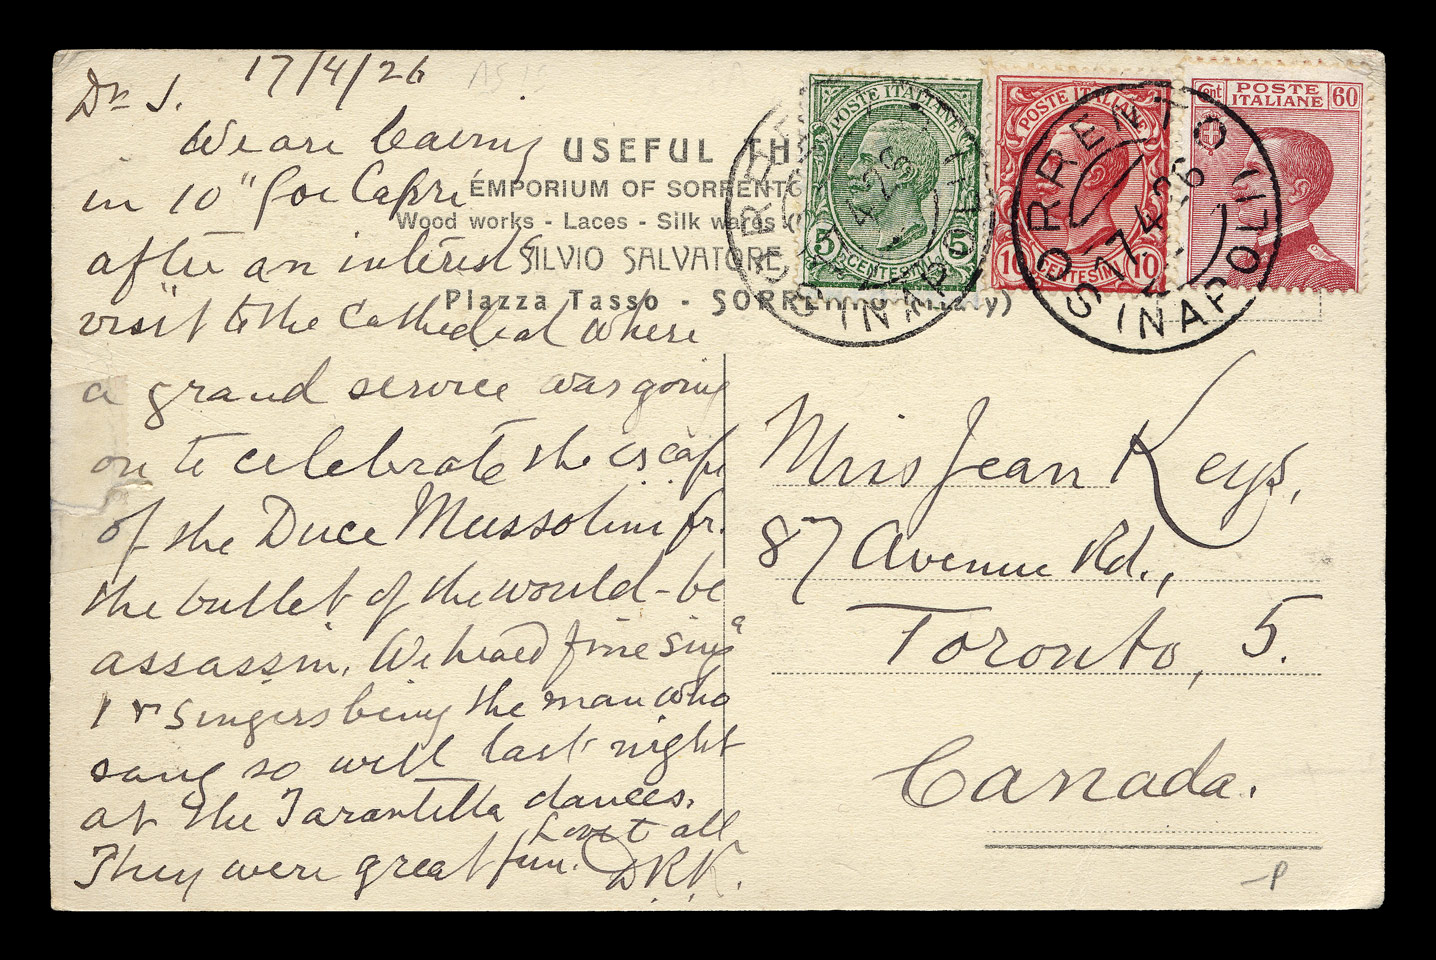 17/4/26
Dr J.
We are leaving
in 10" for Capri
after an interest'g
visit to the Cathedral where
a grand service was going
on to celebrate the escape
of the Duce Mussolini fr.
the bullet of the would-be
assassin. We heard fine sing'g
1 r singers being the man who
sang so well last night
at the Tarantella dances.
They were great fun.
Love t all
D.R.K.
USEFUL TH
EMPORIUM OF SORRENTO
Wood works - Laces - Silk wares
SILVIO SALVATORE
Piazza Tasso - SORRENTO (Italy)
POSTE ITALIANE
5 CENTESIMI 5
POSTE ITALIANE
10 CENTESIMI 10
Cent POSTE ITALIANE 60
SORRENTO
17.4.26
(NAPOLI)
Miss Jean Keys,
87 Avenue Rd.,
Toronto, 5.
Canada.